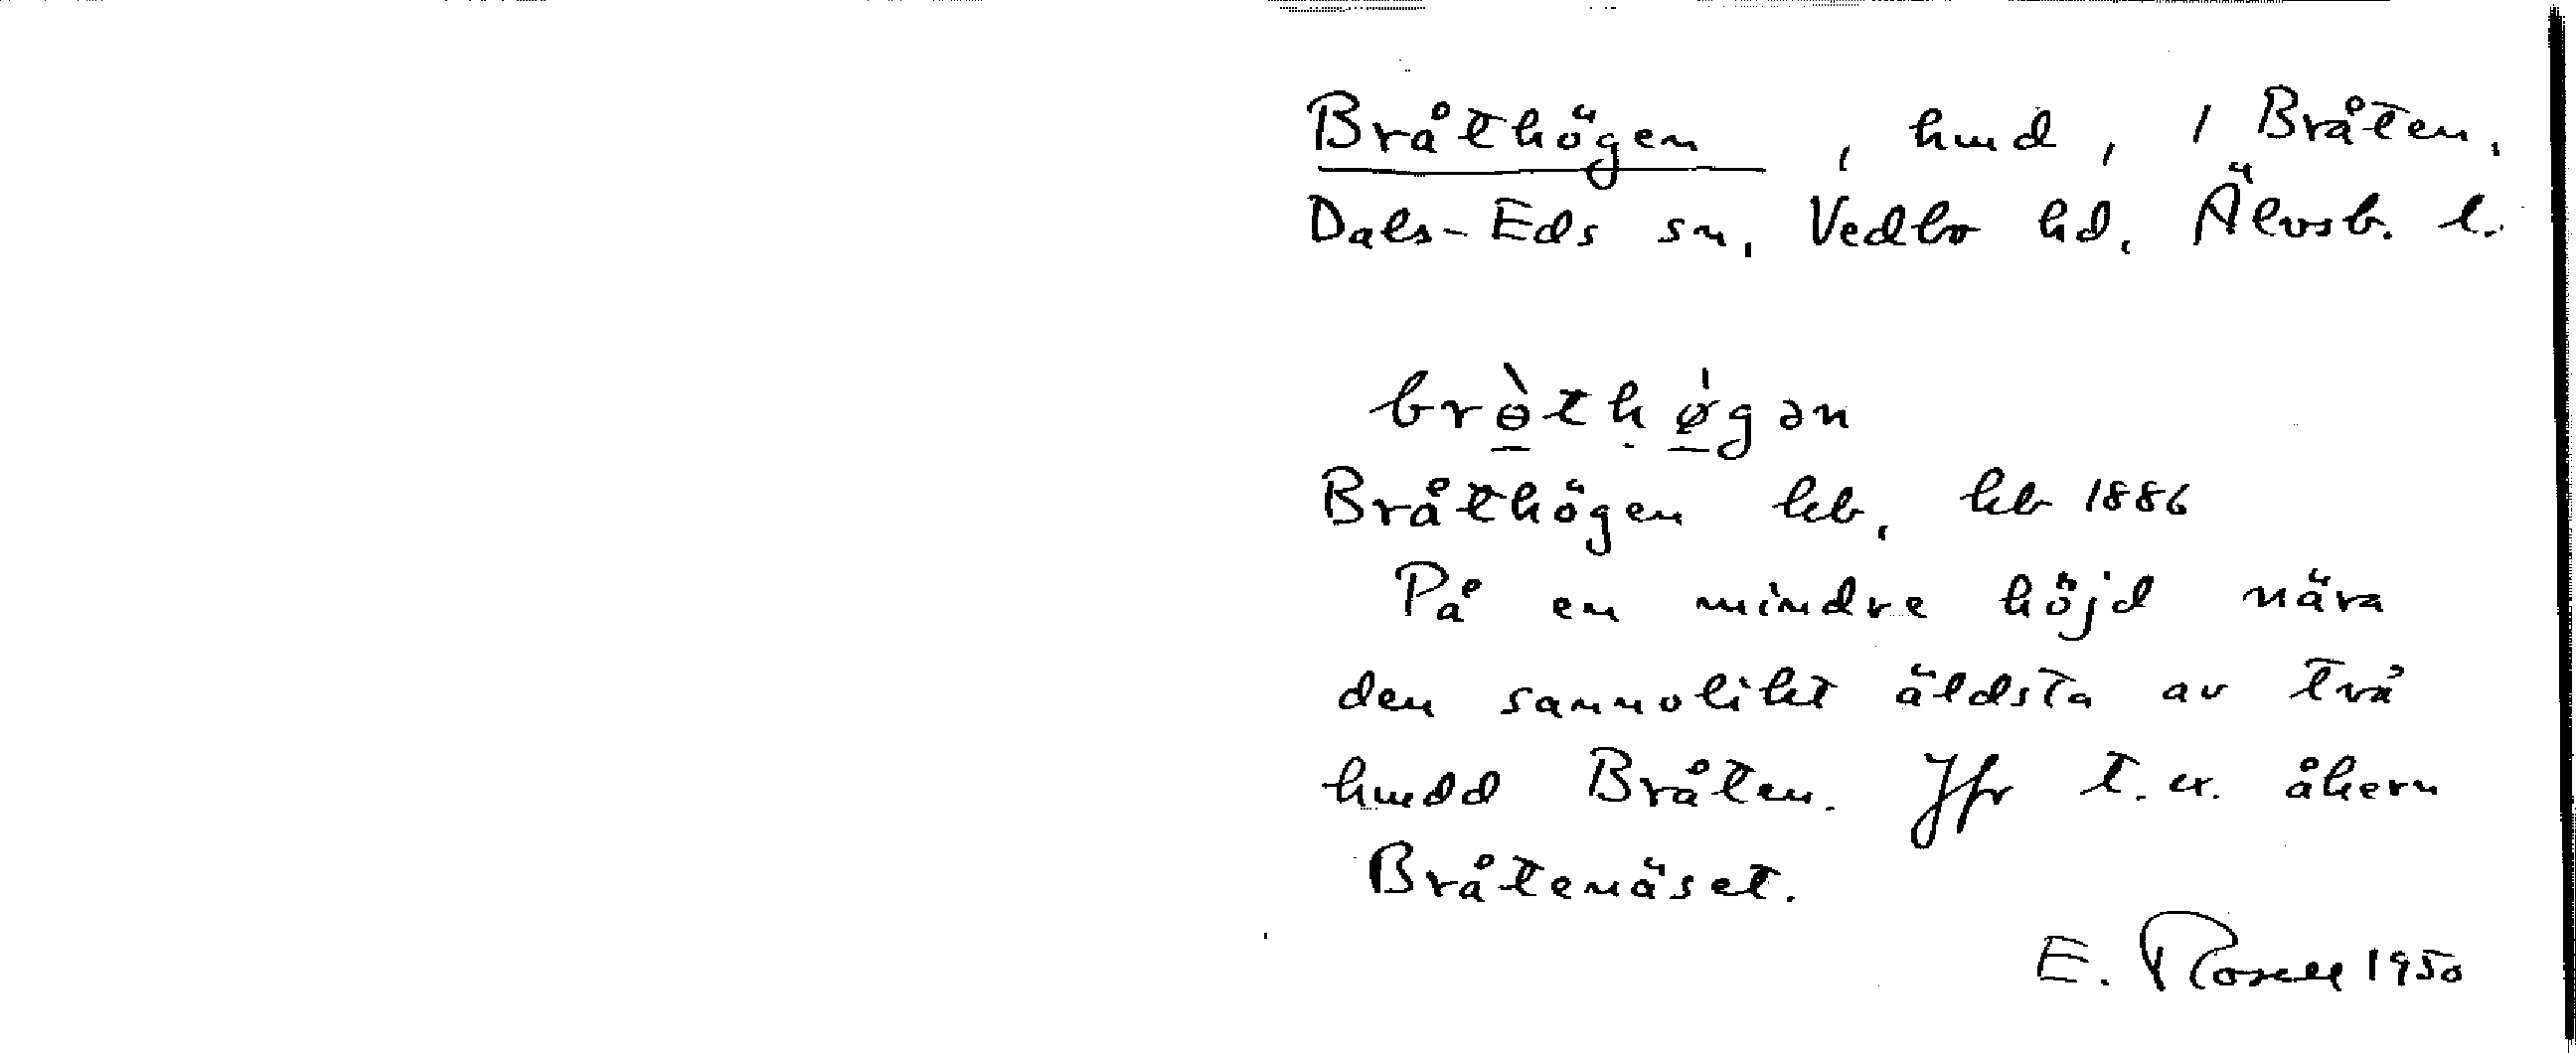 Bråthögen, hmd, 1 Bråten,
Dals-Eds sn, Vedbo hd, Älvsb. l.
brɵ̀thø̍gən
Bråthögen kb, kb 1886
På en mindre höjd nära
den sannolikt äldsta av två
hmdd Bråten. Jfr t.ex. åkern
Bråtenäset.
E. Rosell 1950